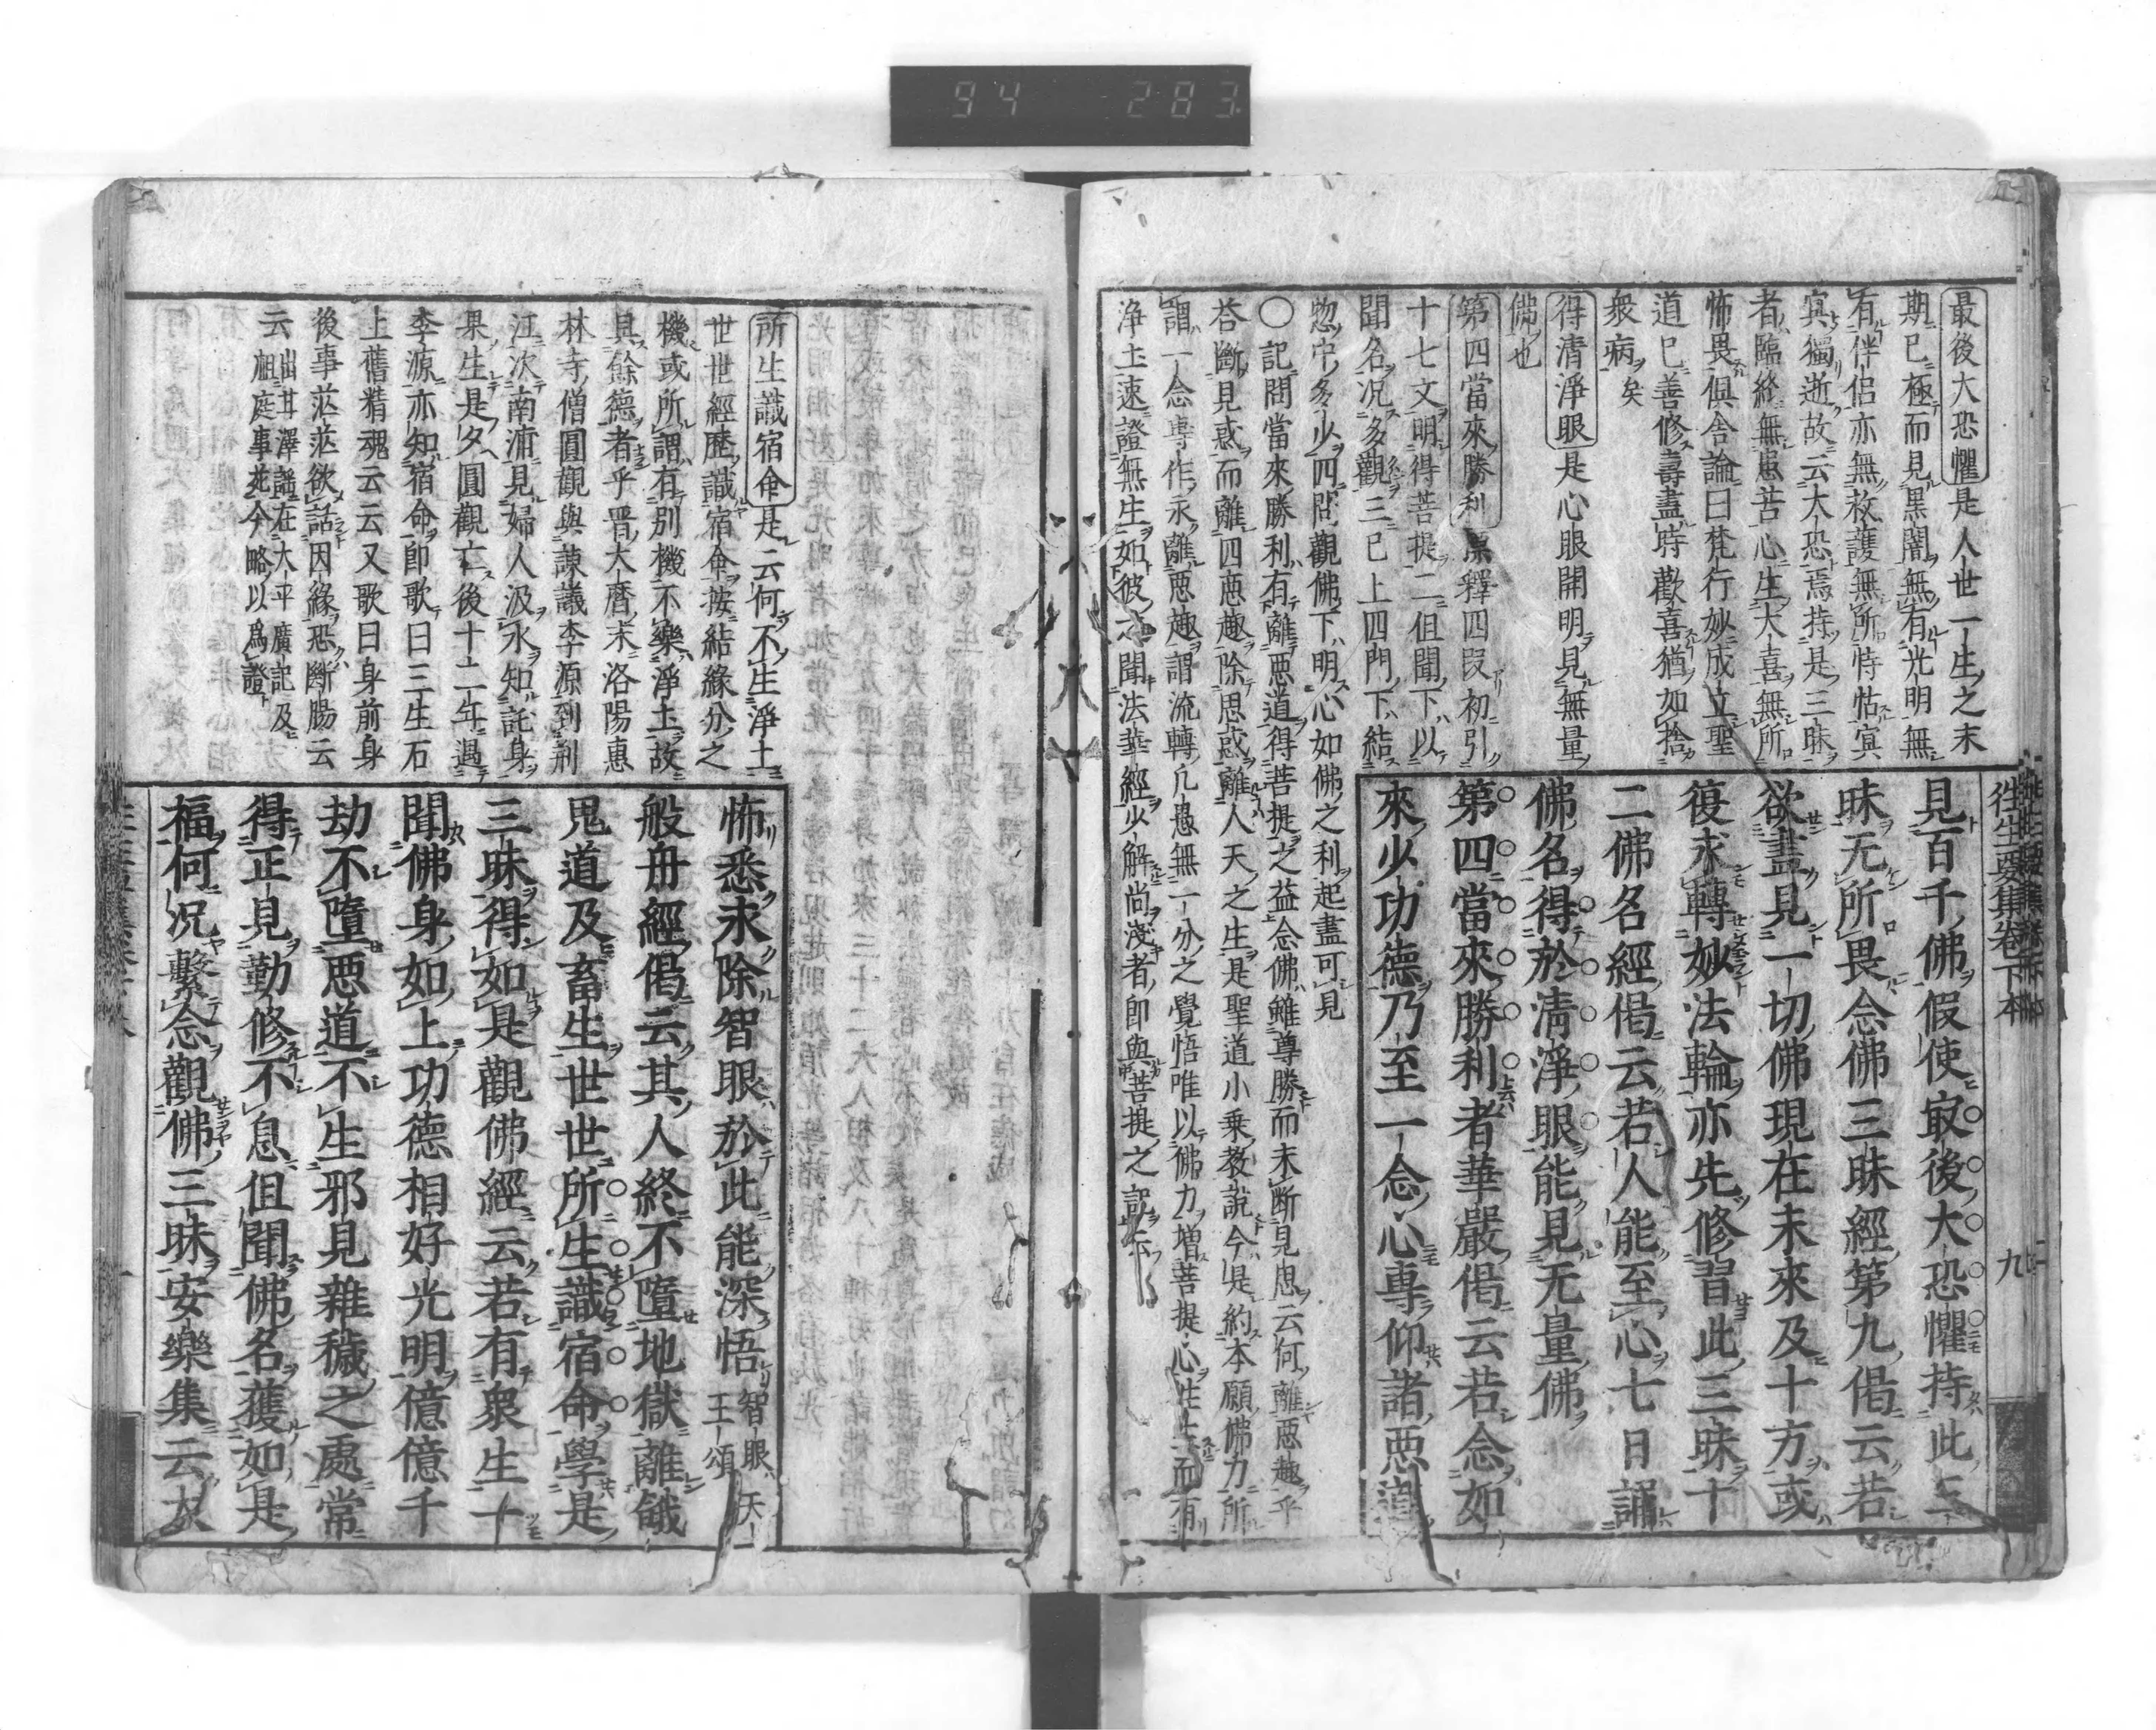 94 283
往生要集卷下本
九
最後大恐懼是人世一生之末
期已極而見黑闇無有光明無
有伴侶亦無救護無所恃怙冥
冥獨逝故云大恐焉持是三昧
者臨終無患苦心生大喜無所
怖畏俱舍論曰梵行妙成立聖
道已善修壽盡時歡喜猶如捨
衆病矣
得清淨眼是心眼開明見無量
佛也
第四當來勝利 釋四段初引
十七文明得菩提二但聞下以
聞名况多觀三已上四門下結
惣中多少四問觀佛下明心如佛之利起盡可見
○記問當來勝利有離惡道得菩提之益念佛雖尊勝而未斷見思云何離惡趣乎
荅斷見惑而離四惡趣除思惑離人天之生是聖道小乘教說今是約本願佛力所
謂一念專作永離惡趣謂流轉凡愚無一分之覺悟唯以佛力增菩提心往生而有
淨土速證無生如彼之聞法華經少解尚淺者即與菩提之記云
見百千佛假使㝡後大恐懼持此三
昧无所畏念佛三昧經第九偈云若
欲盡見一切佛現在未來及十方或
復求轉妙法輪亦先修習此三昧十
二佛名經偈云若人能至心七日誦
佛名得於清淨眼能見无量佛
第四當來勝利者華嚴偈云若念如
來少功德乃至一念心專仰諸惡道
所生識宿命是云何不生淨土
世世經歷識宿命按結緣分之
機或所謂有別機不樂淨土故
具餘德者乎晋大曆末洛陽惠
林寺僧圓觀與諫議李源到荊
江次南浦見婦人汲水知託身
果生是夕圓觀亡後十二年遇
李源亦知宿命即歌曰三生石
上舊精魂云云又歌曰身前身
後事茫茫欲話因緣恐斷腸云
云出甘澤謠在大平廣記及
祖庭事苑今略以爲證
怖悉求除智眼於此能深悟智眼天王頌
般舟經偈云其人終不墮地獄離餓
鬼道及畜生世世所生識宿命學是
三昧得如是觀佛經云若有衆生一
聞佛身如上功德相好光明億億千
劫不墮惡道不生邪見雜穢之處常
得正見勤修不息但聞佛名獲如是
福何况繫念觀佛三昧安樂集云大